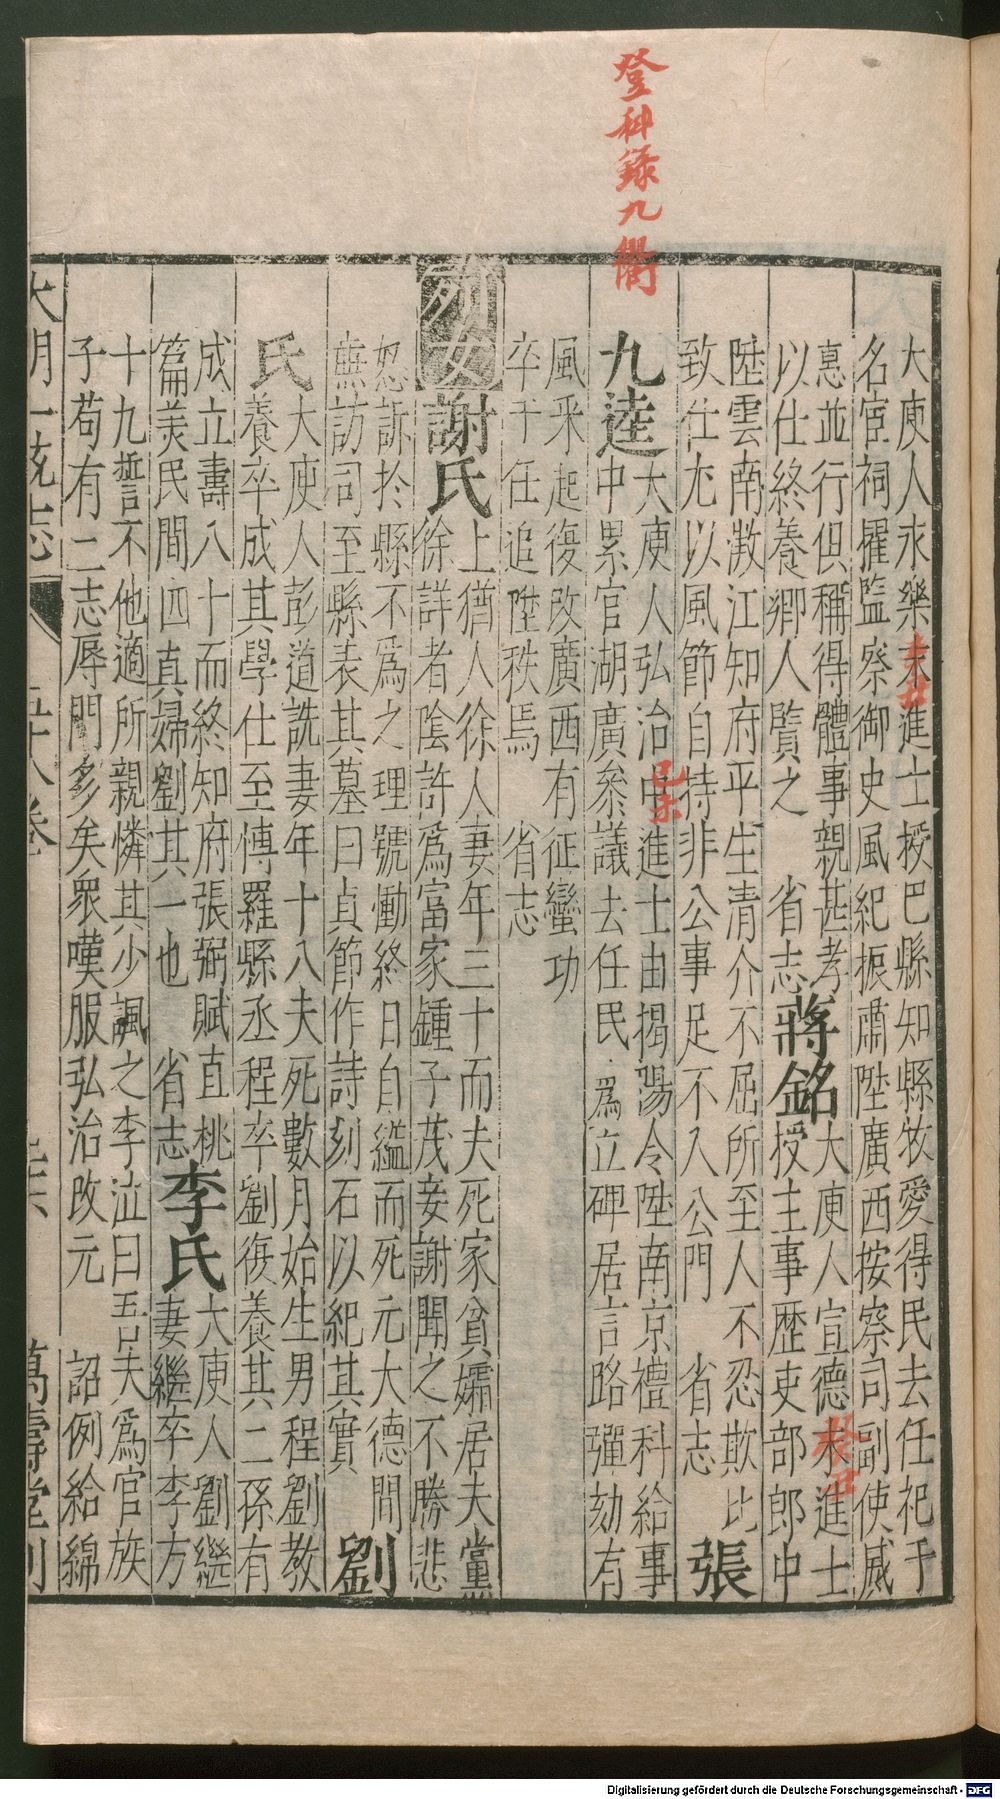 登科録九衢
大庾人永樂進士授巴縣知縣牧愛得民去任祀于
名宦祠擢監察御史風紀振肅陞廣西按察司副使威
惠並行但稱得體事親甚孝 蔣銘 大庾人宣德進士
以仕終養鄉人賢之 省志 授主事歴吏部郎中
陞雲南澂江知府平生清介不屈所至人不忍欺比
致仕尤以風節自持非公事足不入公門 省志 張
九逵 大庾人弘治進士由揭陽令陞南京禮科給事
中累官湖廣叅議去任民為立碑居言路彈劾有
風采起復改廣西有征蠻功
卒于任追陞秩焉 省志
列女 謝氏 上猶人徐人妻年三十而夫死家貧孀居夫黨
徐詳者隂許為富家鍾子茂妾謝聞之不勝悲
怒訴於縣不為之理號慟終日自縊而死元大德間
亷訪司至縣表其墓曰貞節作詩刻石以紀其實 劉
氏 大庾人彭道詵妻年十八夫死數月始生男程劉教
養卒成其學仕至博羅縣丞程卒劉復養其二孫有
成立壽八十而終知府張弼賦直桃
篇美民間四真婦劉其一也 省志 李氏 大庾人劉繼
妻繼卒李方
十九誓不他適所親憐其少諷之李泣曰吾夫為官族
子苟有二志辱門多矣眾嘆服弘治改元 詔例給綿
大明一統志 五十八卷 萬壽堂刊
癸丑
己未
Digitalisierung gefördert durch die Deutsche Forschungsgemeinschaft - DFG